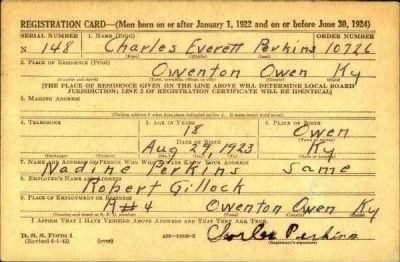 REGISTRATION CARD—(Men born on or after January 1, 1922 and on or before June 30, 1924)
SERIAL NUMBER 1. NAME (Print) ORDER NUMBER
N 148 Charles Everett Perkins 10726
(First) (Middle) (Last)
2. PLACE OF RESIDENCE (Print)
Owenton Owen Ky
(Number and street) (Town, township, village, or city) (County) (State)
[THE PLACE OF RESIDENCE GIVEN ON THE LINE ABOVE WILL DETERMINE LOCAL BOARD
JURISDICTION; LINE 2 OF REGISTRATION CERTIFICATE WILL BE IDENTICAL]
3. MAILING ADDRESS
4. TELEPHONE 5. AGE IN YEARS 6. PLACE OF BIRTH
18 Owen
DATE OF BIRTH
Aug 29, 1923 Ky
7. NAME AND ADDRESS OF PERSON WHO WILL ALWAYS KNOW YOUR ADDRESS
Nadine Perkins Same
8. EMPLOYER'S NAME AND ADDRESS
Robert Gillock
9. PLACE OF EMPLOYMENT OR BUSINESS
R#4 Owenton Owen Ky
(Number and street or R. F. D. number) (Town) (County) (State)
I AFFIRM THAT I HAVE VERIFIED ABOVE ANSWERS AND THAT THEY ARE TRUE.
D. S. S. Form 1 Charles Perkins
(Revised 6-1-42) (over) (Registrant's signature)